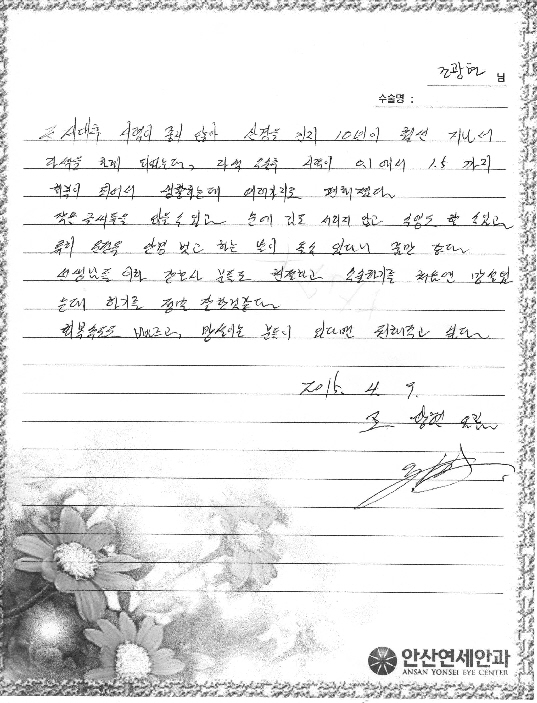 조광현 님
수술명 :
시력이 좋지 않아 안경을 낀지 10년이 훨씬 지나서
라섹을 하게 되었는데, 라섹 수술후 시력이 0.1에서 1.5 까지
회복이 되어서 생활하는데 여러가지로 편해졌다.
작은 글씨들을 읽을 수 있고 눈에 김도 서리지 않고 수영도 할 수 있고
특히 운전을 안경 벗고 하는 날이 올수 있다니 꿈만 같다.
선생님들 이하 간호사 분들도 친절하고 수술하기를 처음엔 망설였
는데 하기를 정말 잘한것같다.
회복속도도 빠르고, 망설이는 분들이 있다면 추천해주고 싶다.
2015. 4. 9.
조 광현 드림
안산연세안과
ANSAN YONSEI EYE CENTER